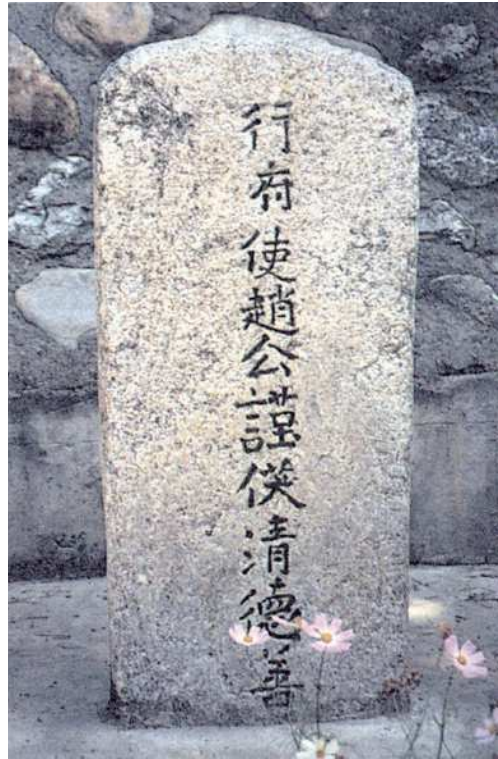 行府使趙公謹偀清德善